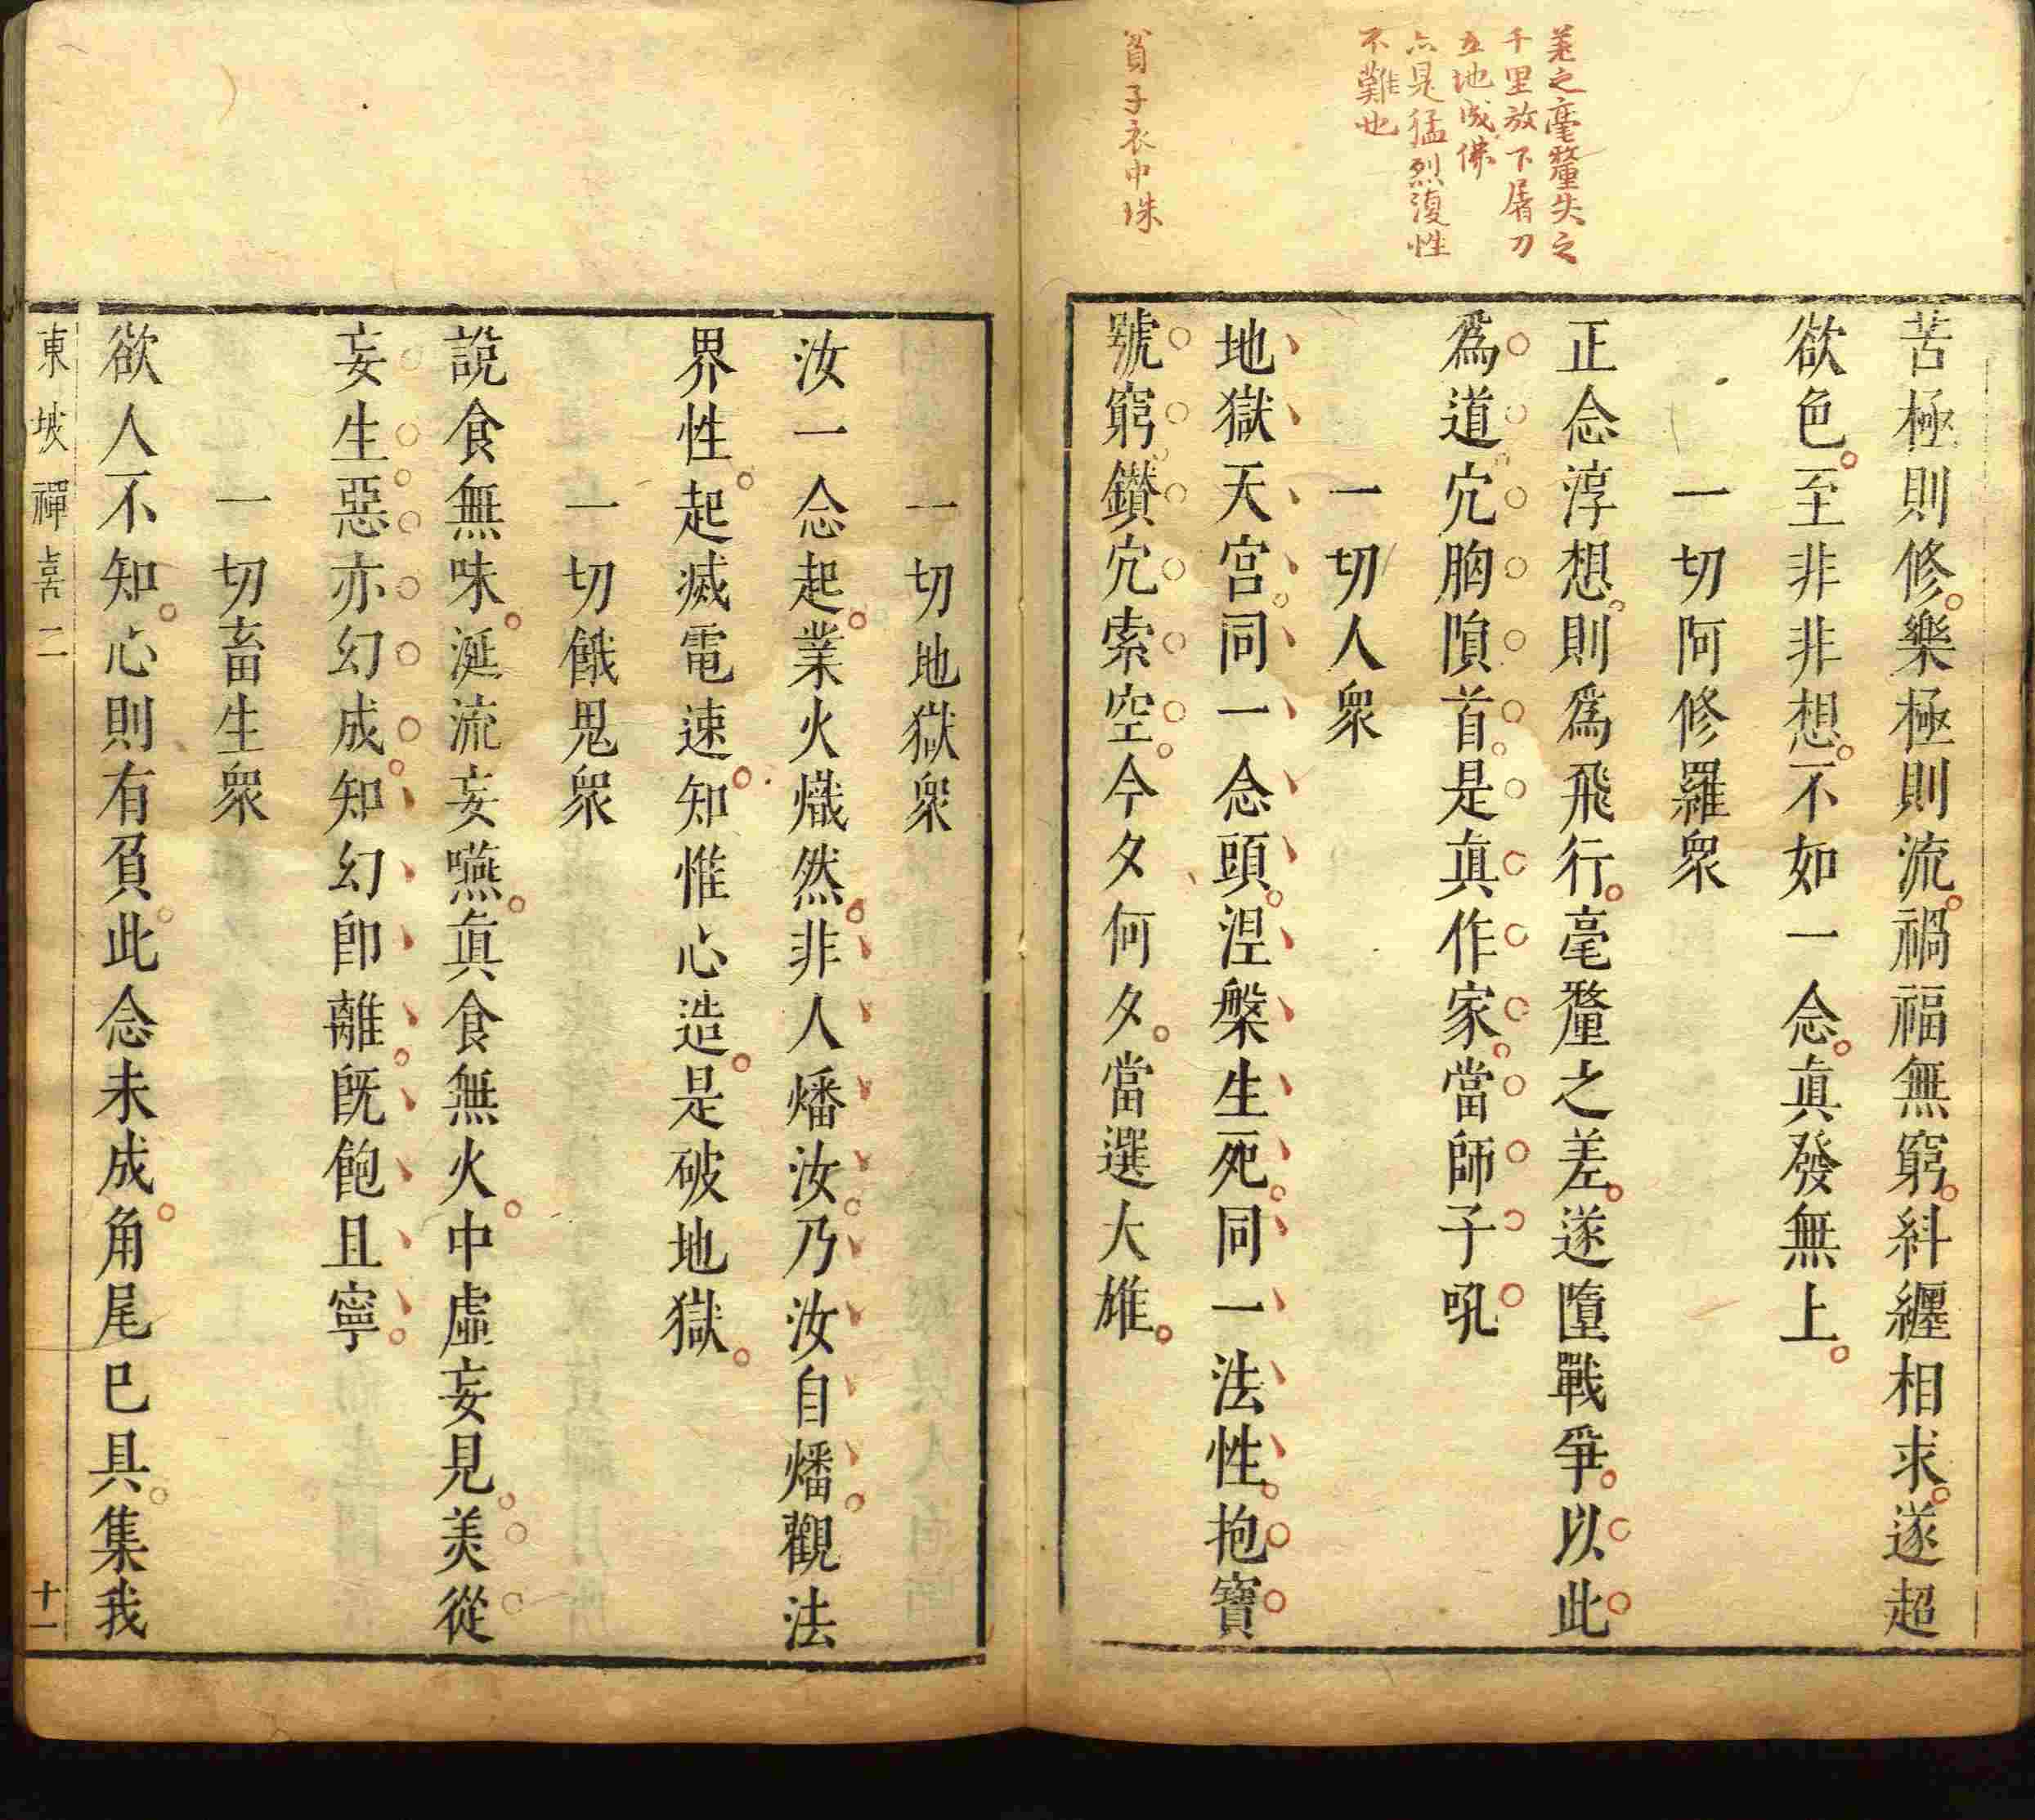 差之毫釐失之
千里放下屠刀
立地成佛
亦是猛烈復性
不難也
貧子衣中珠
苦極則修樂極則流禍福無窮糾纏相求遂超
欲色至非非想不如一念真發無上
一切阿修羅眾
正念淳想則為飛行毫釐之差遂墮戰爭以此
為道穴胸隕首是真作家當師子吼
一切人眾
地獄天宮同一念頭涅槃生死同一法性抱寶
號窮鑽穴索空今夕何夕當選大雄
一切地獄眾
汝一念起業火熾然非人燔汝乃汝自燔觀法
界性起滅電速知惟心造是破地獄
一切餓鬼眾
說食無味涎流妄嚥真食無火中虛妄見美從
妄生惡亦幻成知幻即離既飽且寧
一切畜生眾
欲人不知心則有負此念未成角尾已具集我
東坡禪喜二
十一